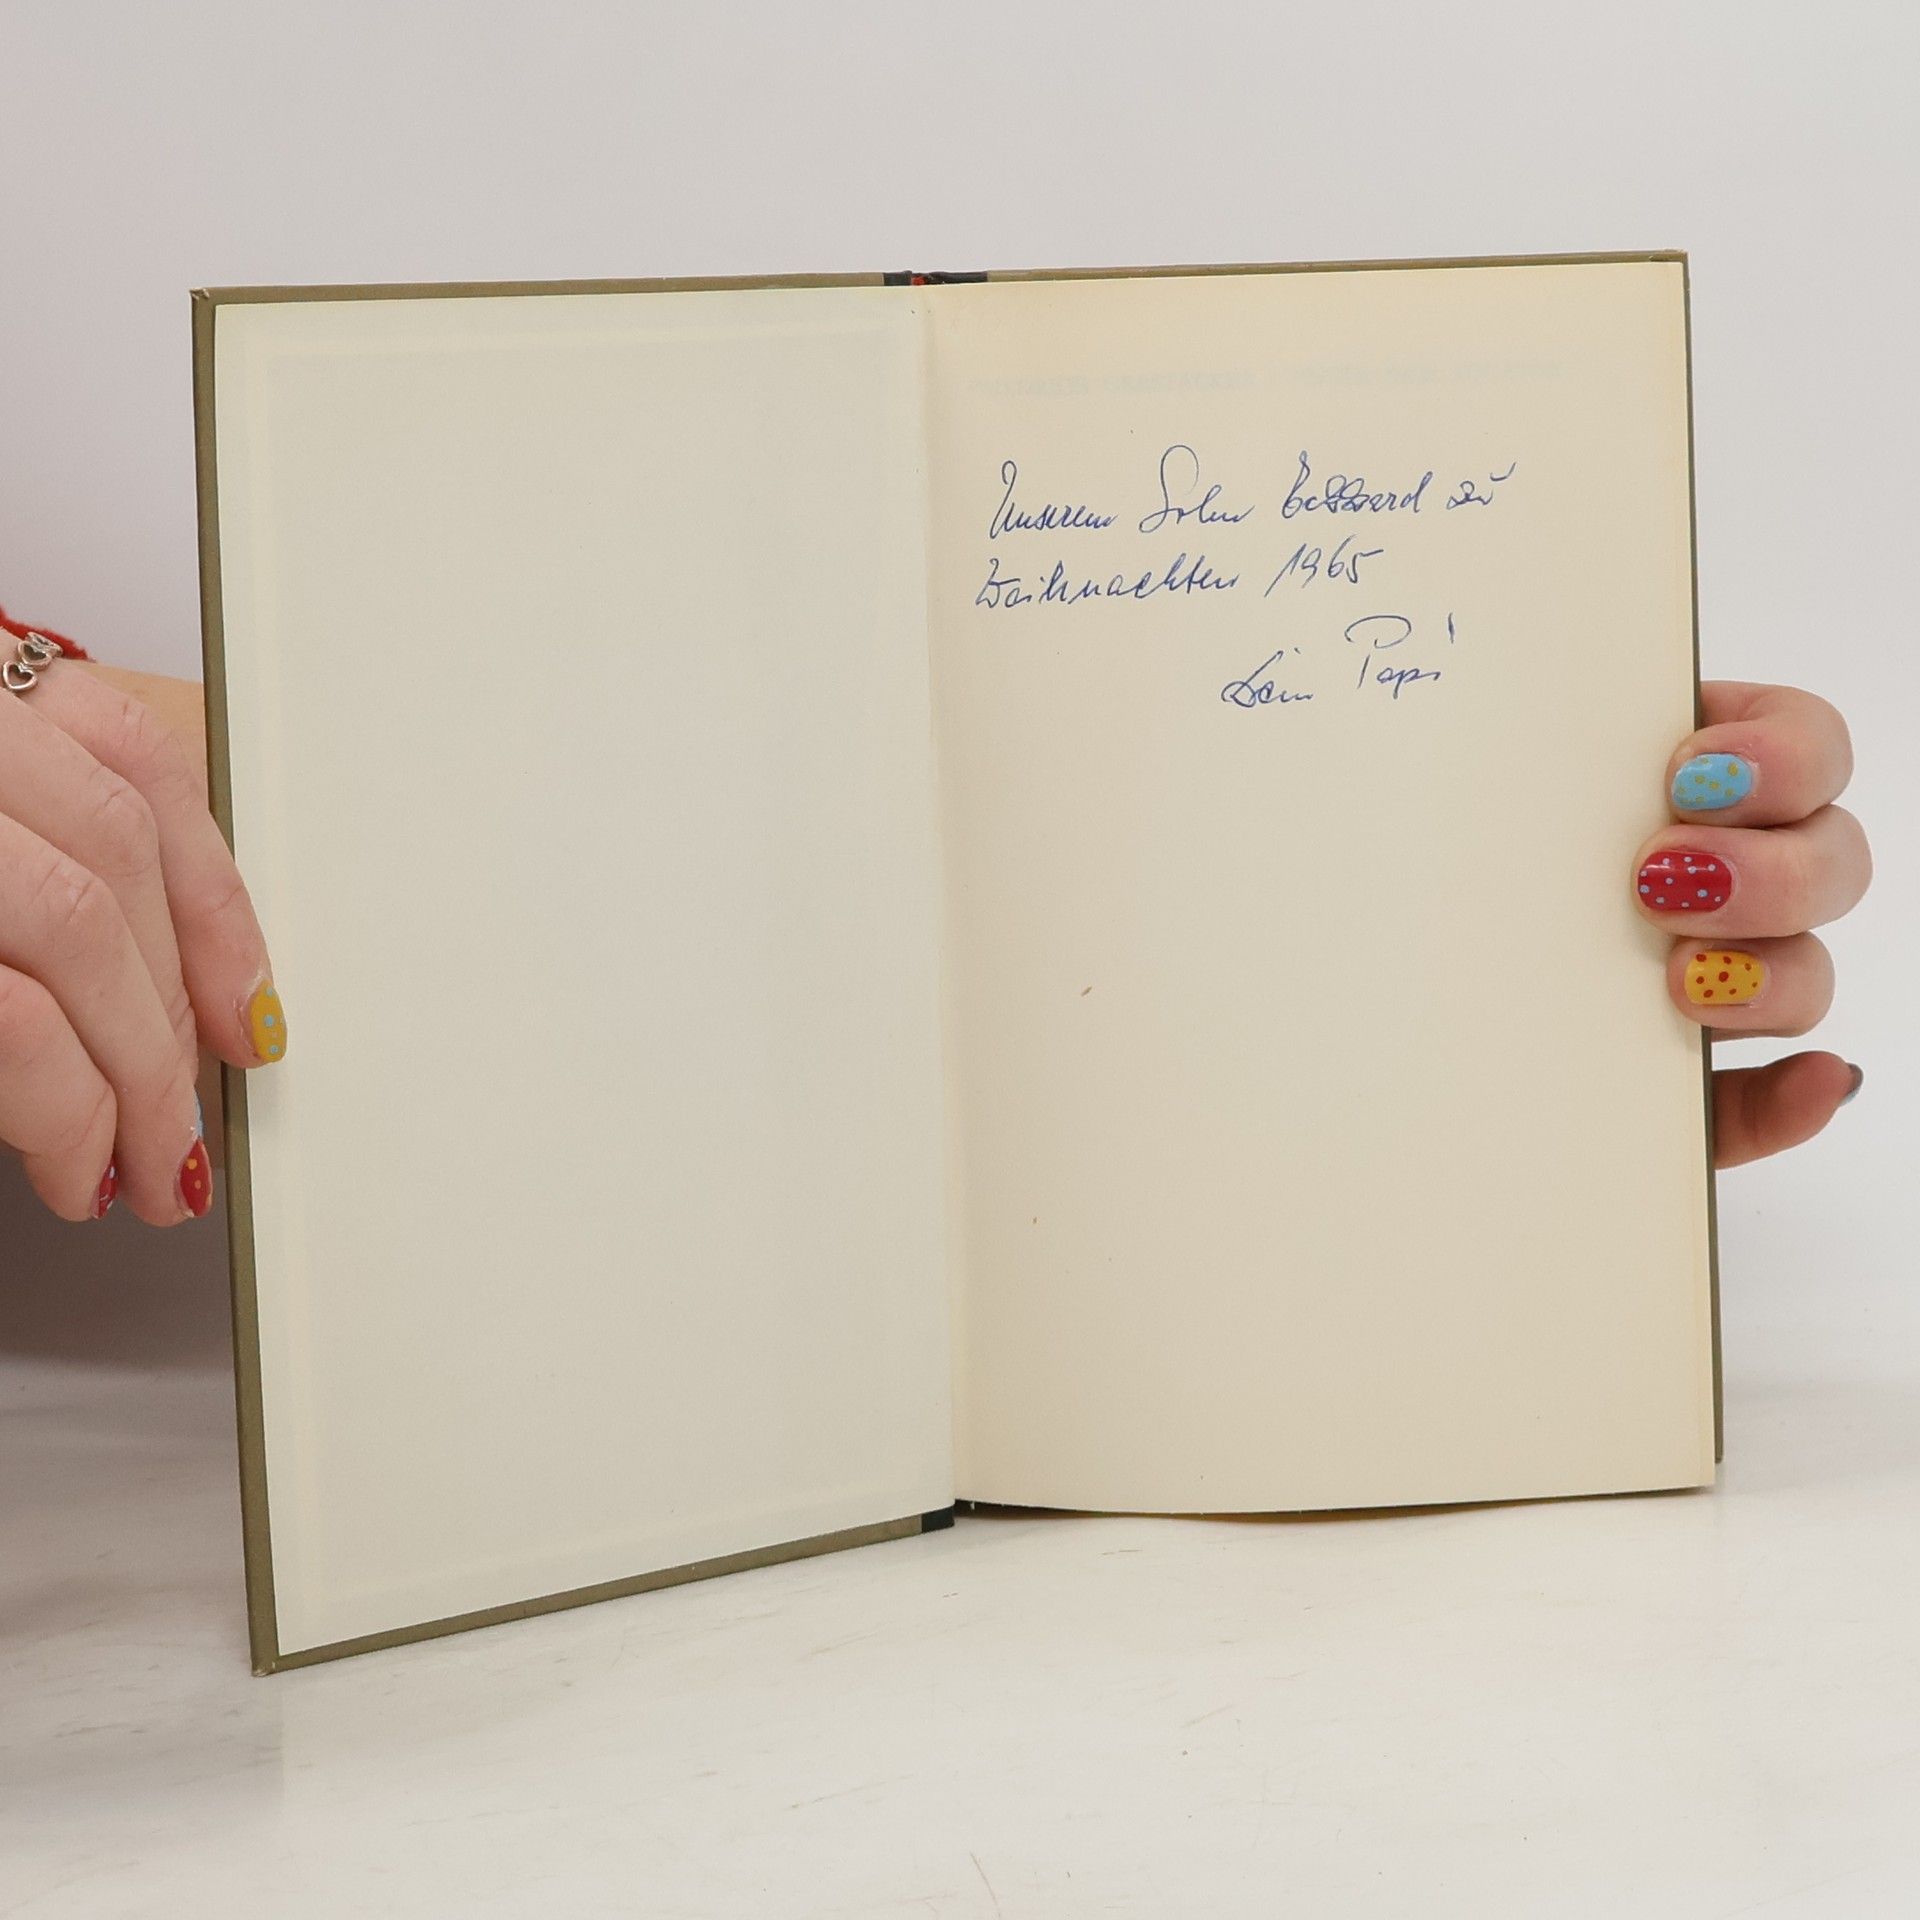 Unserem Sohn zu
Weihnachten 1965
Dein Papi!